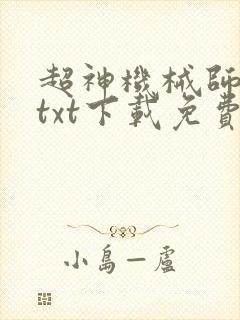 超神機械師
txt下載免費
小島一盧